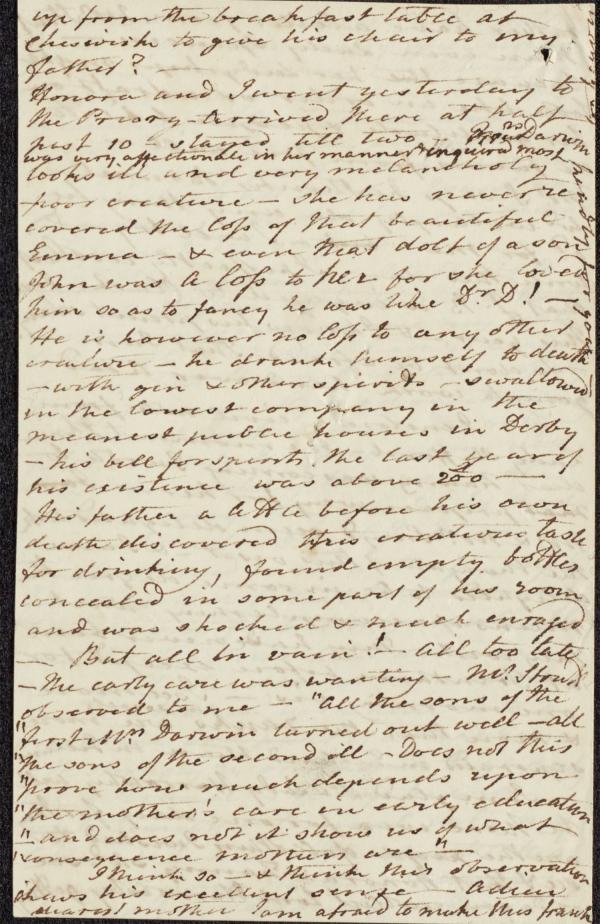 up from the breakfast table at
Cheswick to give his chair to my
father? —
Honora and I went yesterday to
the Priory – arrived there at half
past 10 – stayed till two – Mrs. Darwin
was very affectionate in her manner & inquired most
looks ill and very melancholy
poor creature – she has never re
covered the loss of that beautiful
Emma – & even that dolt of a son
John was a loss to her for she loved
him so as to fancy he was like Dr. D! –
He is however no loss to any other
creature – he drank himself to death
– with gin & other spirits – swallowed
in the lowest company in the
meanest public houses in Derby
– his bill for spirits the last year of
his existence was above 200 —
His father a little before his own
death discovered this creature's taste
for drinking, found empty bottles
concealed in some part of his room
and was shocked & much enraged
— But all in vain! – all too late
– the early care was wanting – Mr. Strutt
observed to me – "All the sons of the
"first Mrs. Darwin turned out well – all
"the sons of the second ill – Does not this
"prove how much depends upon
"the mother's care in early education
"– and does not it show us of what
"consequence mothers are" –
I think so – & think this observation
shews his excellent sense – Adieu
dearest mother I am afraid to make this frank
kindly for you